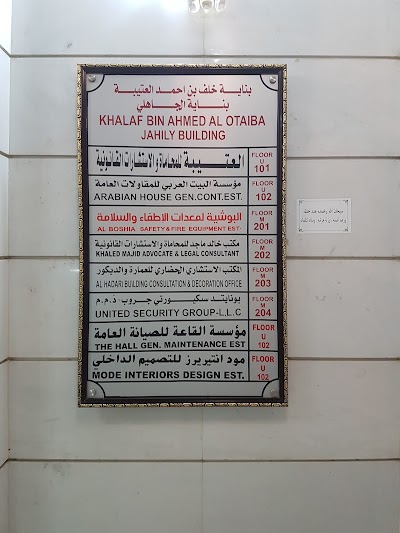 بناية خلف بن احمد العتيبة
بناية الجاهلي
KHALAF BIN AHMED AL OTAIBA
JAHILY BUILDING
العتيبة للمحاماة والاستشارات القانونية
FLOOR U 101
مؤسسة البيت العربي للمقاولات العامة
ARABIAN HOUSE GEN.CONT.EST.
FLOOR U 102
البوشية لمعدات الاطفاء والسلامة
AL BOSHIA SAFETY & FIRE EQUIPMENT EST
FLOOR M 201
مكتب خالد ماجد للمحاماة والاستشارات القانونية
KHALED MAJID ADVOCATE & LEGAL CONSULTANT
FLOOR M 202
المكتب الاستشاري الحضاري للعمارة والديكور
AL HADARI BUILDING CONSULTATION & DECORATION OFFICE
FLOOR M 203
يونايتد سكيورتي جروب ذ.م.م
UNITED SECURITY GROUP-L.L.C
FLOOR M 204
مؤسسة القاعة للصيانة العامة
THE HALL GEN. MAINTENANCE EST
FLOOR U 102
مود انتيريرز للتصميم الداخلي
MODE INTERIORS DESIGN EST.
FLOOR U 102